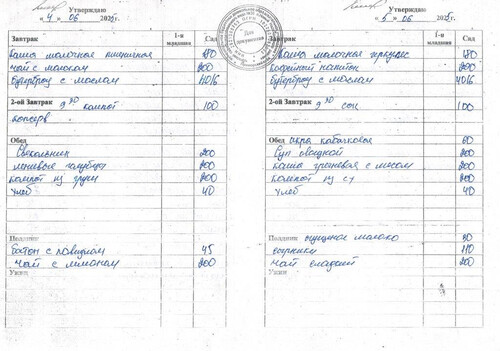 Утверждаю
« 4 » 06 2025г.
Завтрак 1-я младшая Сад
Каша молочная пшеничная 180
чай с молоком 200
бутерброд с маслом 40/6
2-ой Завтрак 9 30 компот 100
консерв
Обед
Свекольник 200
ленивые голубцы 200
компот из груш 200
хлеб 40
Полдник
батон с повидлом 45
чай с лимоном 200
Ужин
Утверждаю
« 5 » 06 2025г.
Завтрак 1-я младшая Сад
Каша молочная геркулес 180
кофейный напиток 200
бутерброд с маслом 40/6
2-ой Завтрак 9 30 сок 100
Обед икра кабачковая 60
Суп овощной 200
каша гречневая с мясом 200
компот из с/ф 200
хлеб 40
Полдник сгущеное молоко 30
сырники 110
чай сладкий 200
Ужин
Для документов